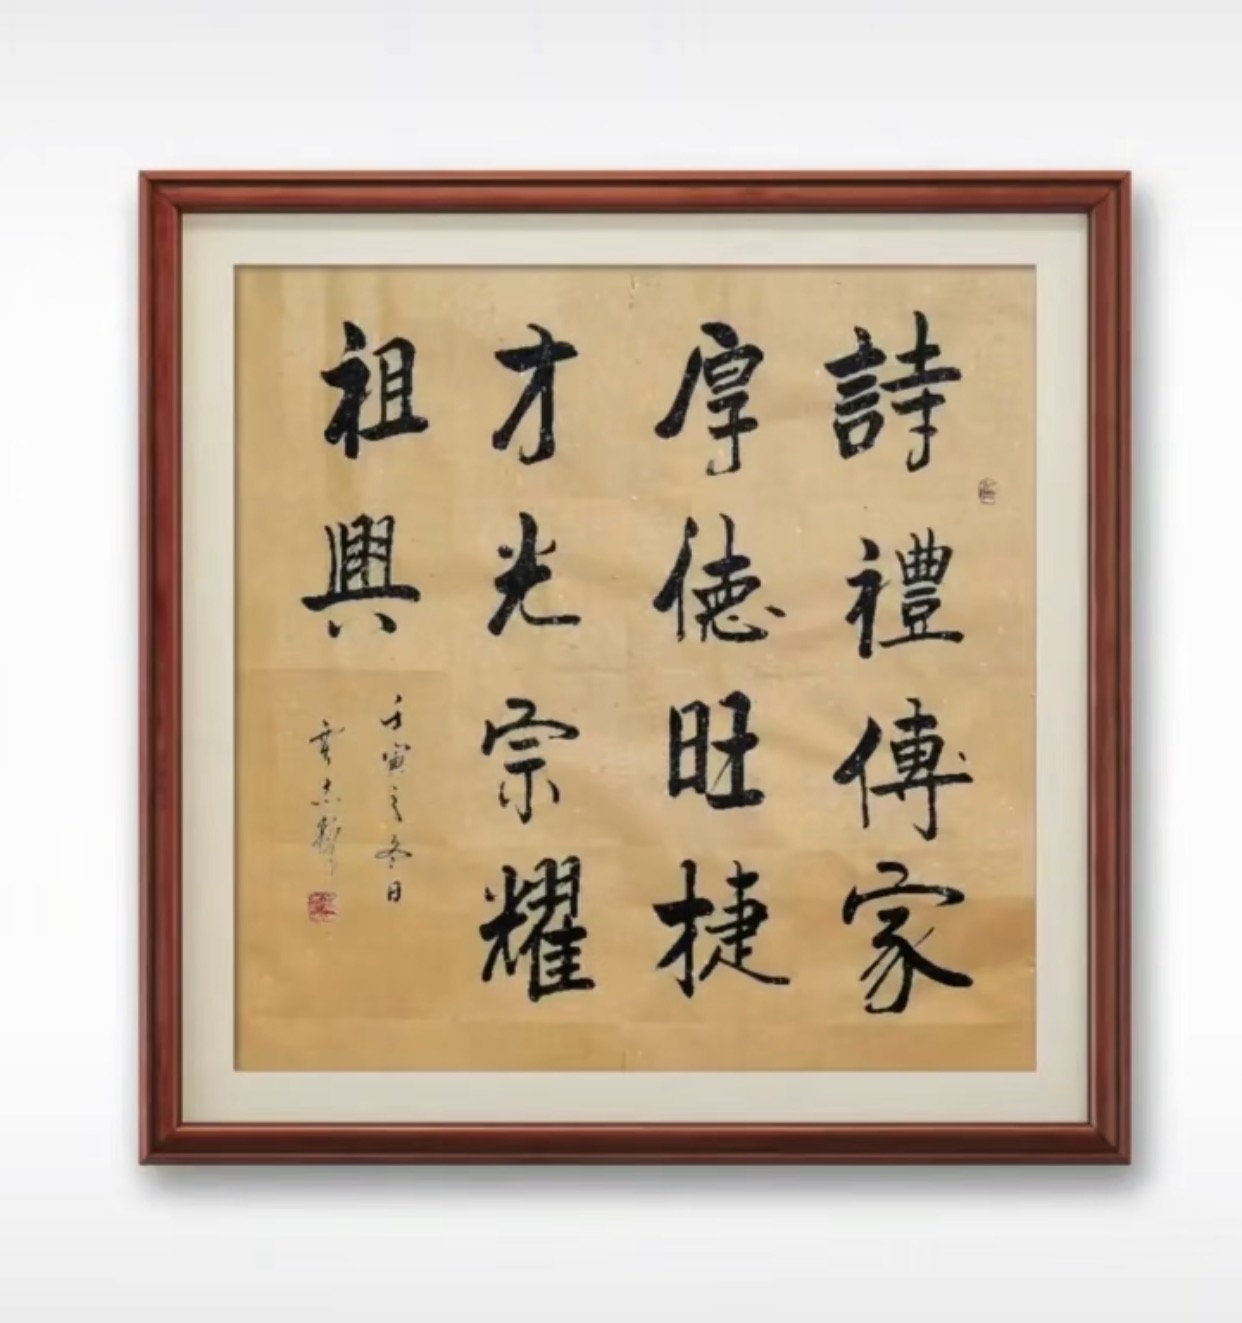 詩禮傳家
厚德旺捷
才光宗耀
祖興
壬寅之冬日